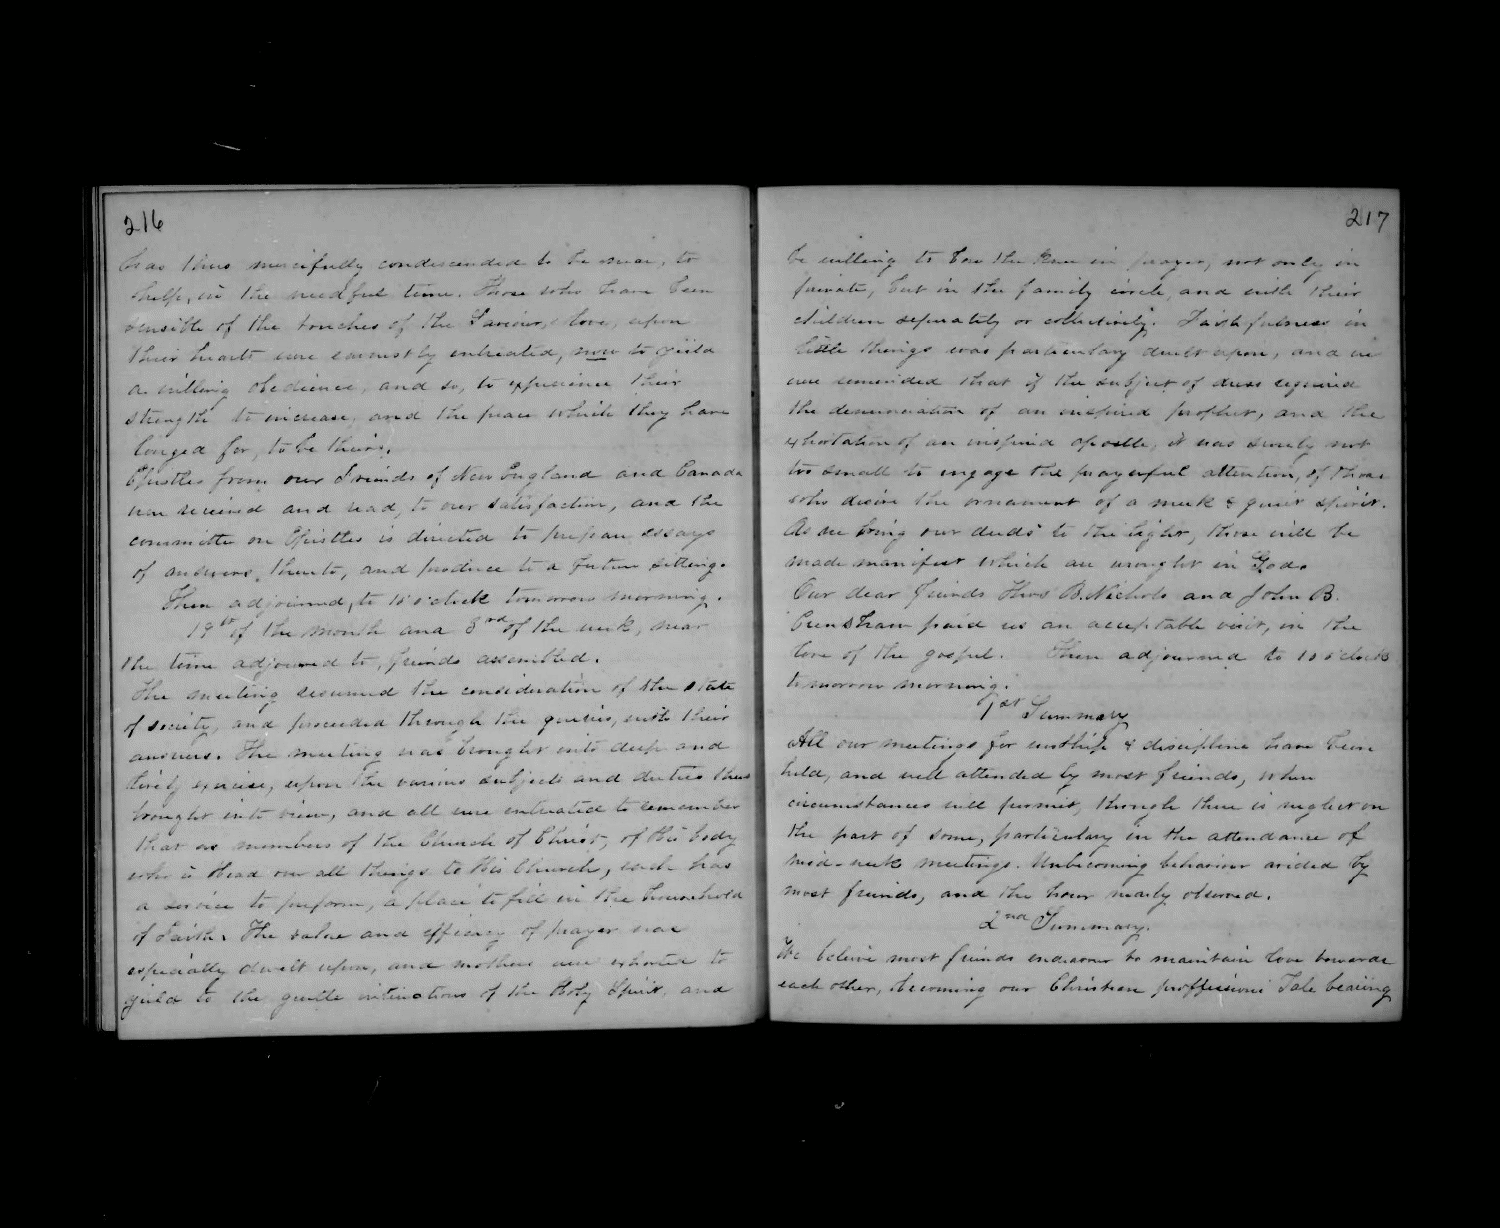 216
has thus mercifully condescended to be near, to
help, in the needful time. Those who have been
sensible of the touches of the Saviour's love, upon
their hearts were earnestly entreated, now to yield
a willing obedience, and so, to experience their
strength to increase, and the peace which they have
longed for, to be theirs.
Epistles from our Friends of New England and Canada
were received and read, to our satisfaction, and the
committe on Epistles is directed to prepare essays
of answers, thereto, and produce to a future sitting.
Then adjourned, to 10 o'clock tomorrow morning.
19th of the month and 3rd of the week, near
the time adjourned to, friends assembled.
The meeting resumed the consideration of the state
of society, and proceeded through the queries, with their
answers. The meeting was brought into deep and
lively exercise, upon the various subjects and duties thus
brought into view, and all were entreated to remember
that as members of the Church of Christ, of His body
who is Head over all things to His Church, each has
a service to preform, a place to fill in the household
of Faith. The value and efficacy of prayer was
especially dwelt upon, and mothers were exhorted to
yield to the gentle intimations of the Holy Spirit, and
217
be willing to bow the knee in prayer, not only in
private, but in the family circle, and with their
children seperately or collectively. Faithfulness in
little things was particulary dwelt upon, and we
were reminded that if the subject of dress required
the denunciation of an inspired prophet, and the
exhortation of an inspired apostle, it was surely not
too small to engage the prayerful attention, of those
who desire the ornament of a meek & quiet spirit.
As we bring our deeds to the light, those will be
made manifest which are wrought in God.
Our dear friends Thos B. Nichols and John B.
Crenshaw paid us an acceptable visit, in the
love of the gospel. Then adjourned to 10 o'clock
tomorrow morning.
1st Summary
All our meetings for worship & discipline have been
held, and well attended by most friends, when
circumstances will permit, though there is neglect on
the part of some, particulary in the attendance of
mid-week meetings. Unbecoming behaviour avoided by
most friends, and the hour nearly observed.
2nd Summary.
We believe most friends endeavor to maintain love towards
each other, becoming our Christian proffession. Tale bearing